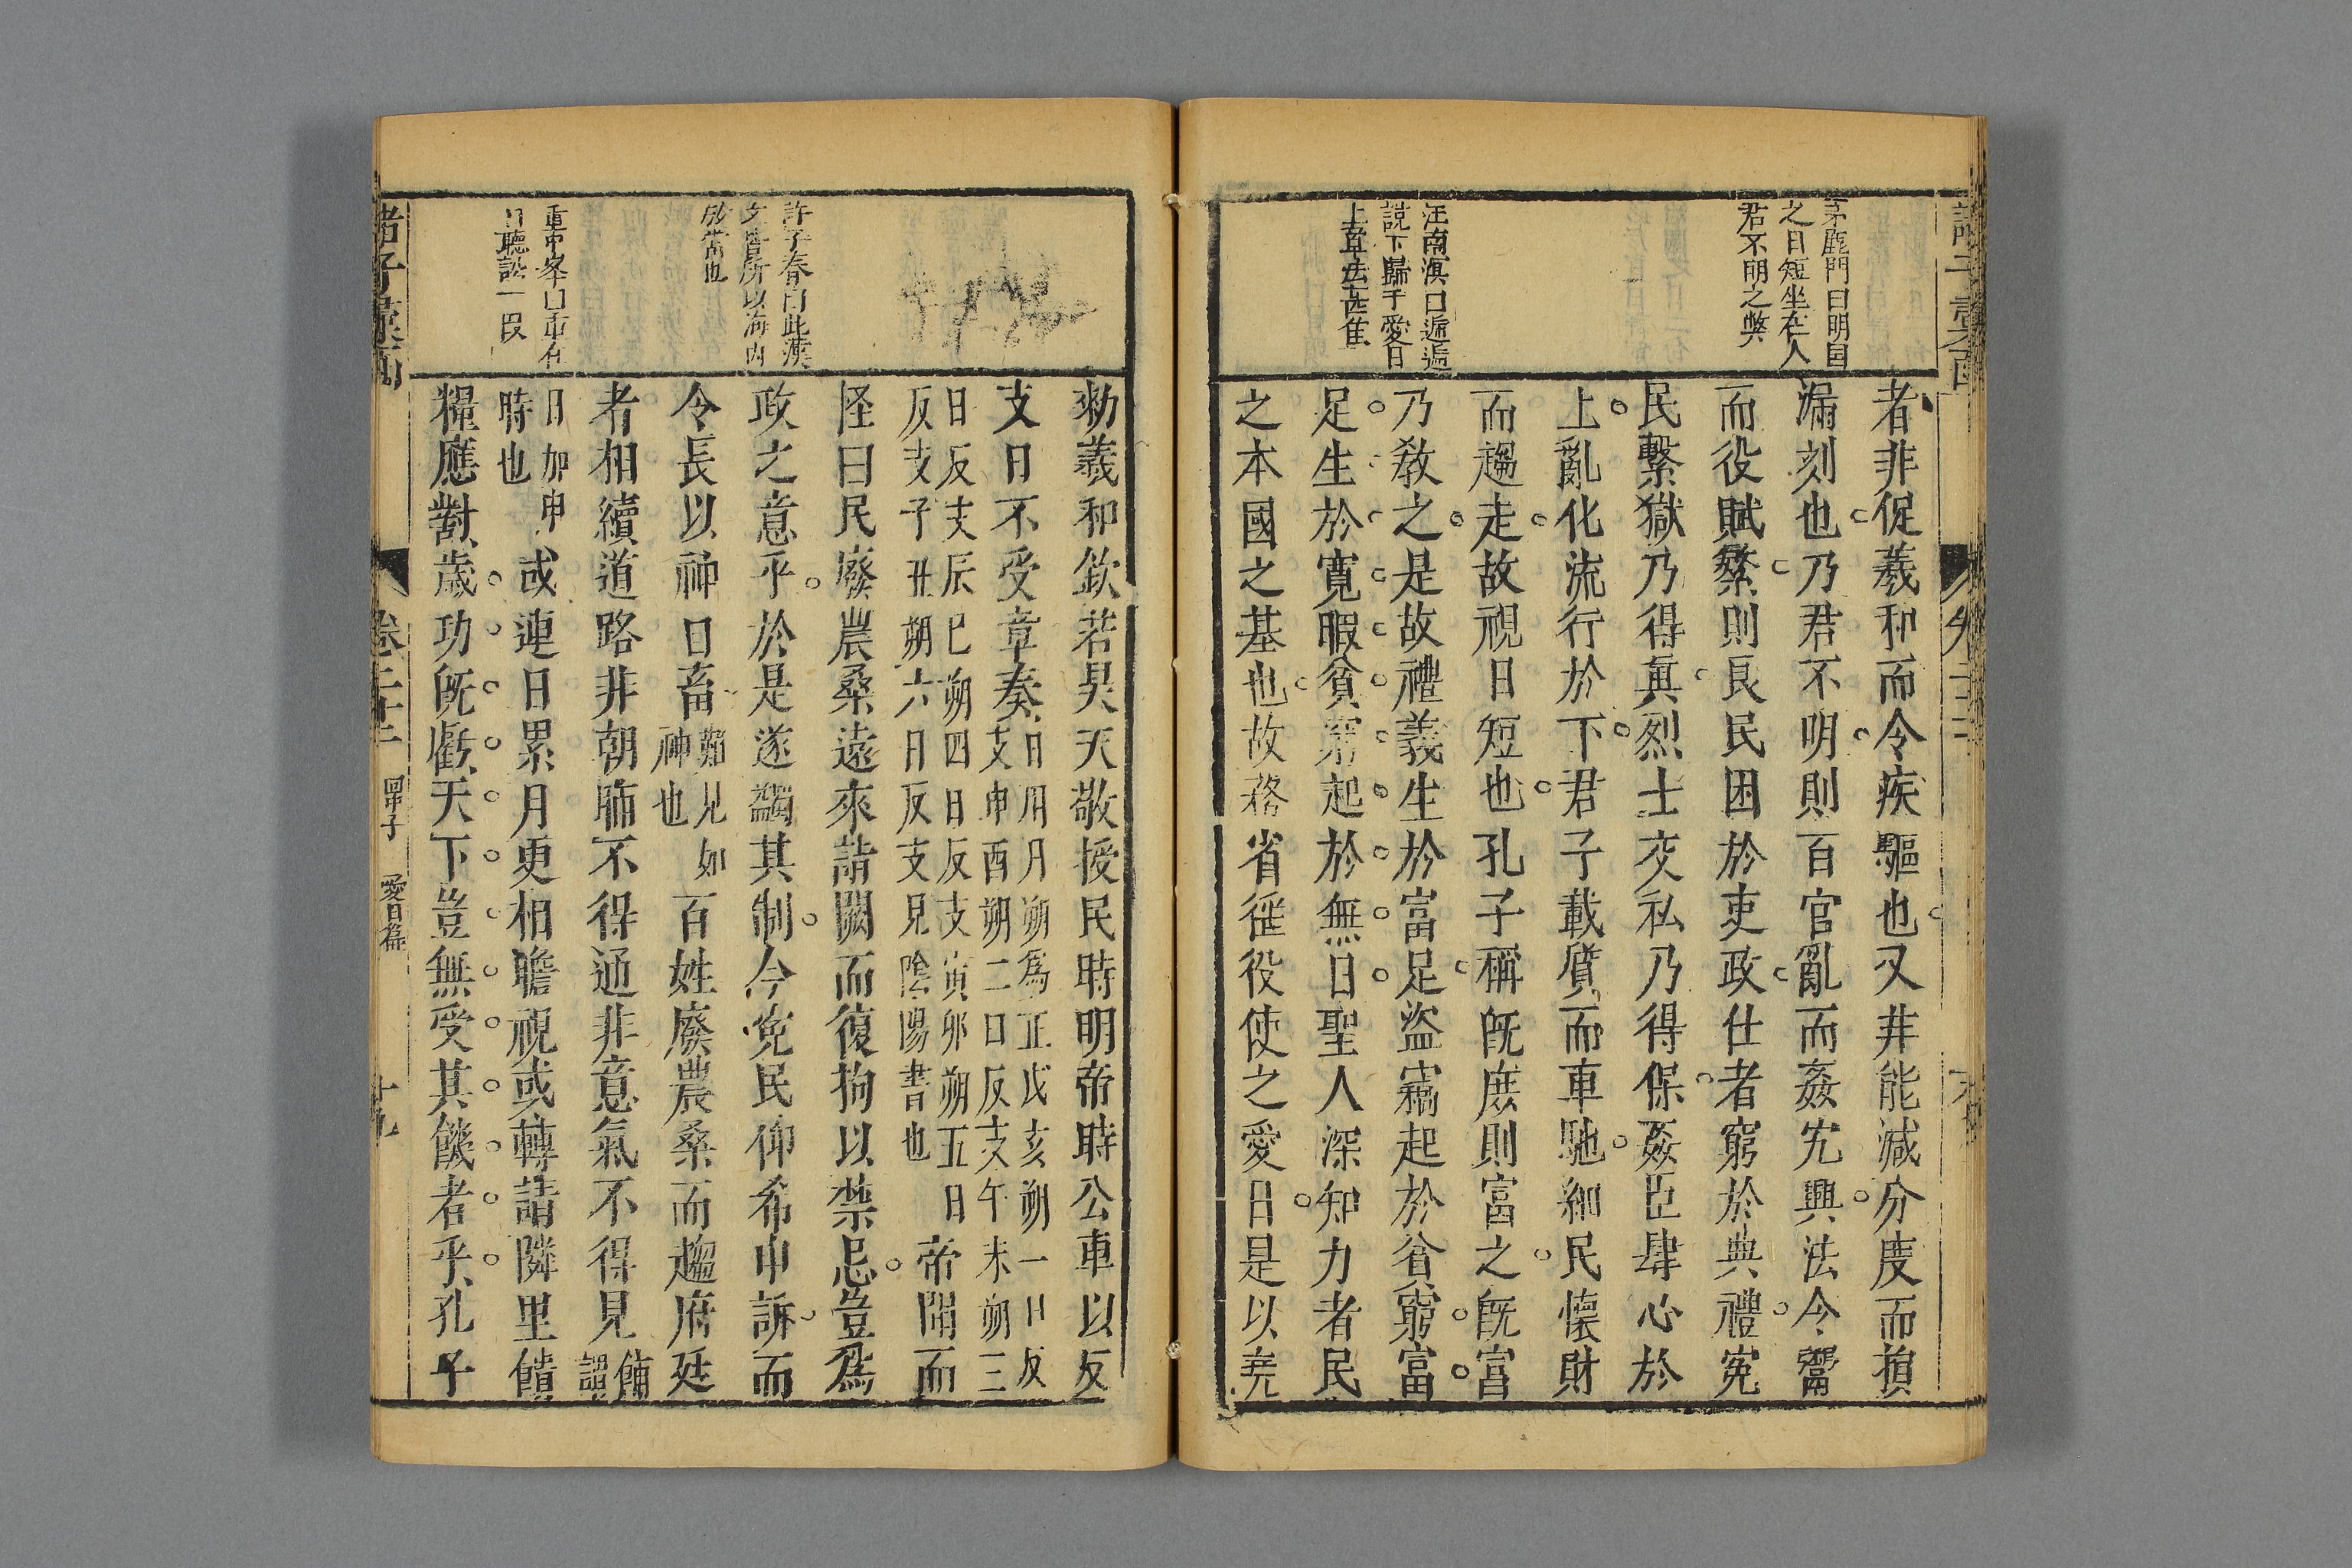 茅鹿門曰明国
之日短坐在人
君不明之弊
汪南溟曰遞遞
說下歸于愛日
上章法甚隹
者非促羲和而令疾驅也又非能減分度而損
漏刻也乃君不明則百官亂而姦宄興法令鬻
而役賦繁則良民困於吏政仕者窮於典禮寃
民繫獄乃得眞烈士交私乃得保姦臣肆心於
上亂化流行於下君子載質而車馳細民懷財
而趨走故視日短也孔子稱旣庶則富之旣富
乃敎之是故禮義生於富足盜竊起於貧窮富
足生於寬暇貧窮起於無日聖人深知力者民
之本國之基也故務省徭役使之愛日是以堯
許子春曰此漢
文皆所以海内
殷富也
日聽訟一段
勑羲和欽若昊天敬授民時明帝時公車以反
支日不受章奏
日用月朔爲正戌亥朔一日反
支申酉朔二日反支午未朔三
日反支辰巳朔四日反支寅卯朔五日
反支子丑朔六日反支見陰陽書也
帝聞而
怪曰民廢農桑遠來詣闕而復拘以禁忌豈爲
政之意乎於是遂蠲其制今寃民仰希申訴而
令長以神日畜
難見如
神也
百姓廢農桑而趨府廷
者相續道路非朝晡不得通非意氣不得見
餔
謂
日加申
時也
或連日累月更相瞻視或轉請隣里饋
糧應對歲功旣虧天下豈無受其饑者乎孔子
諸子彙函
卷二十二
回中子
愛日篇
十九